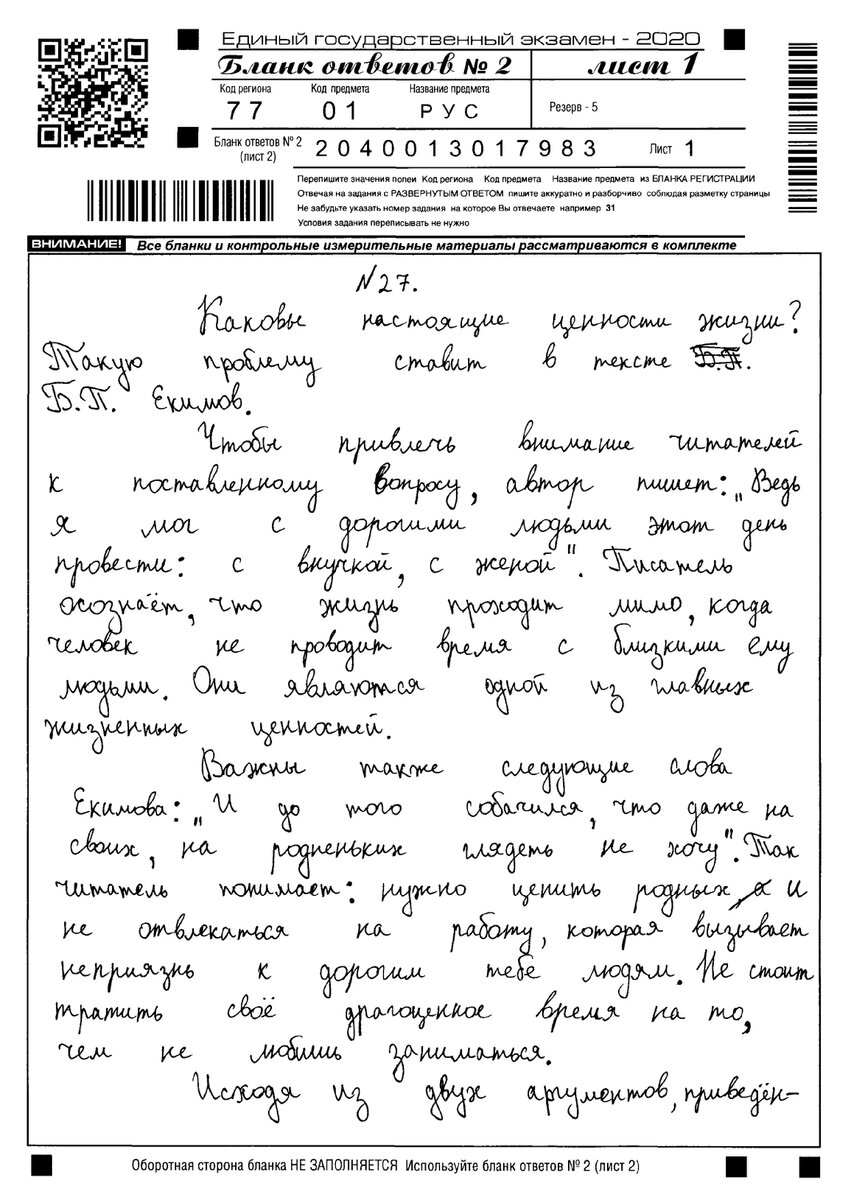 Единый государственный экзамен - 2020
Бланк ответов № 2 лист 1
Код региона Код предмета Название предмета
77 01 РУС Резерв - 5
Бланк ответов № 2
(лист 2) 2040013017983 Лист 1
Перепишите значения полеи Код региона Код предмета Название предмета из БЛАНКА РЕГИСТРАЦИИ
Отвечая на задания с РАЗВЕРНУТЫМ ОТВЕТОМ пишите аккуратно и разборчиво соблюдая разметку страницы
Не забудьте указать номер задания на которое Вы отвечаете например 31
Условия задания переписывать не нужно
ВНИМАНИЕ! Все бланки и контрольные измерительные материалы рассматриваются в комплекте
№27.
Каковы настоящие ценности жизни?
Такую проблему ставит в тексте Б.П.
Б.П. Екимов.
Чтобы привлечь внимание читателей
к поставленному вопросу, автор пишет: „Ведь
я мог с дорогими людьми этот день
провести: с внучкой, с женой". Писатель
осознаёт, что жизнь проходит мимо, когда
человек не проводит время с близкими ему
людьми. Они являются одной из главных
жизненных ценностей.
Важны также следующие слова
Екимова: „И до того собачился, что даже на
своих, на родненьких глядеть не хочу". Так
читатель понимает: нужно ценить родных, а и
не отвлекаться на работу, которая вызывает
неприязнь к дорогим тебе людям. Не стоит
тратить своё драгоценное время на то,
чем не любишь заниматься.
Исходя из двух аргументов, приведён-
Оборотная сторона бланка НЕ ЗАПОЛНЯЕТСЯ Используйте бланк ответов № 2 (лист 2)